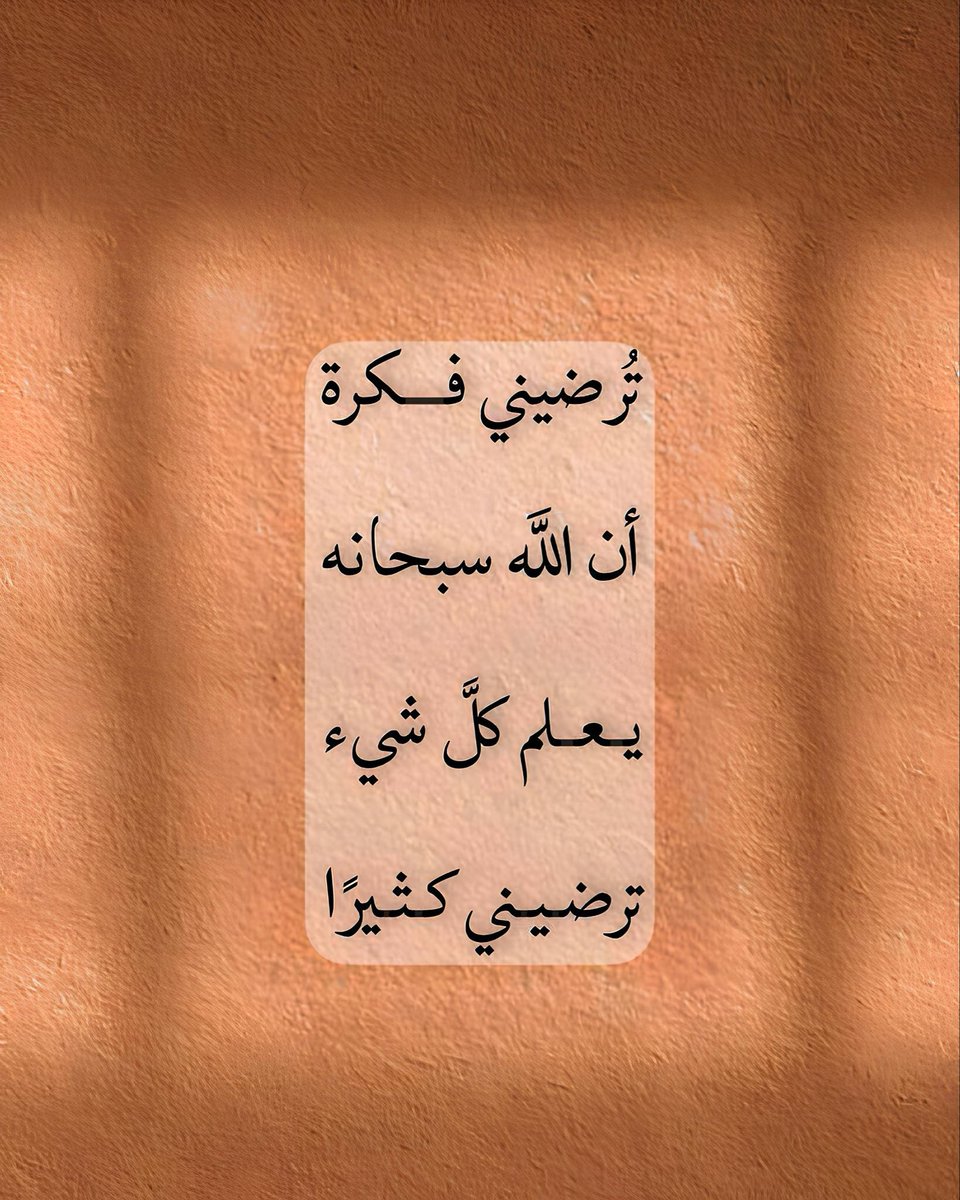 تُرضيني فـكرة
أن اللَّه سبحانه
يـعـلم كلَّ شيء
ترضيـني كـثيرًا